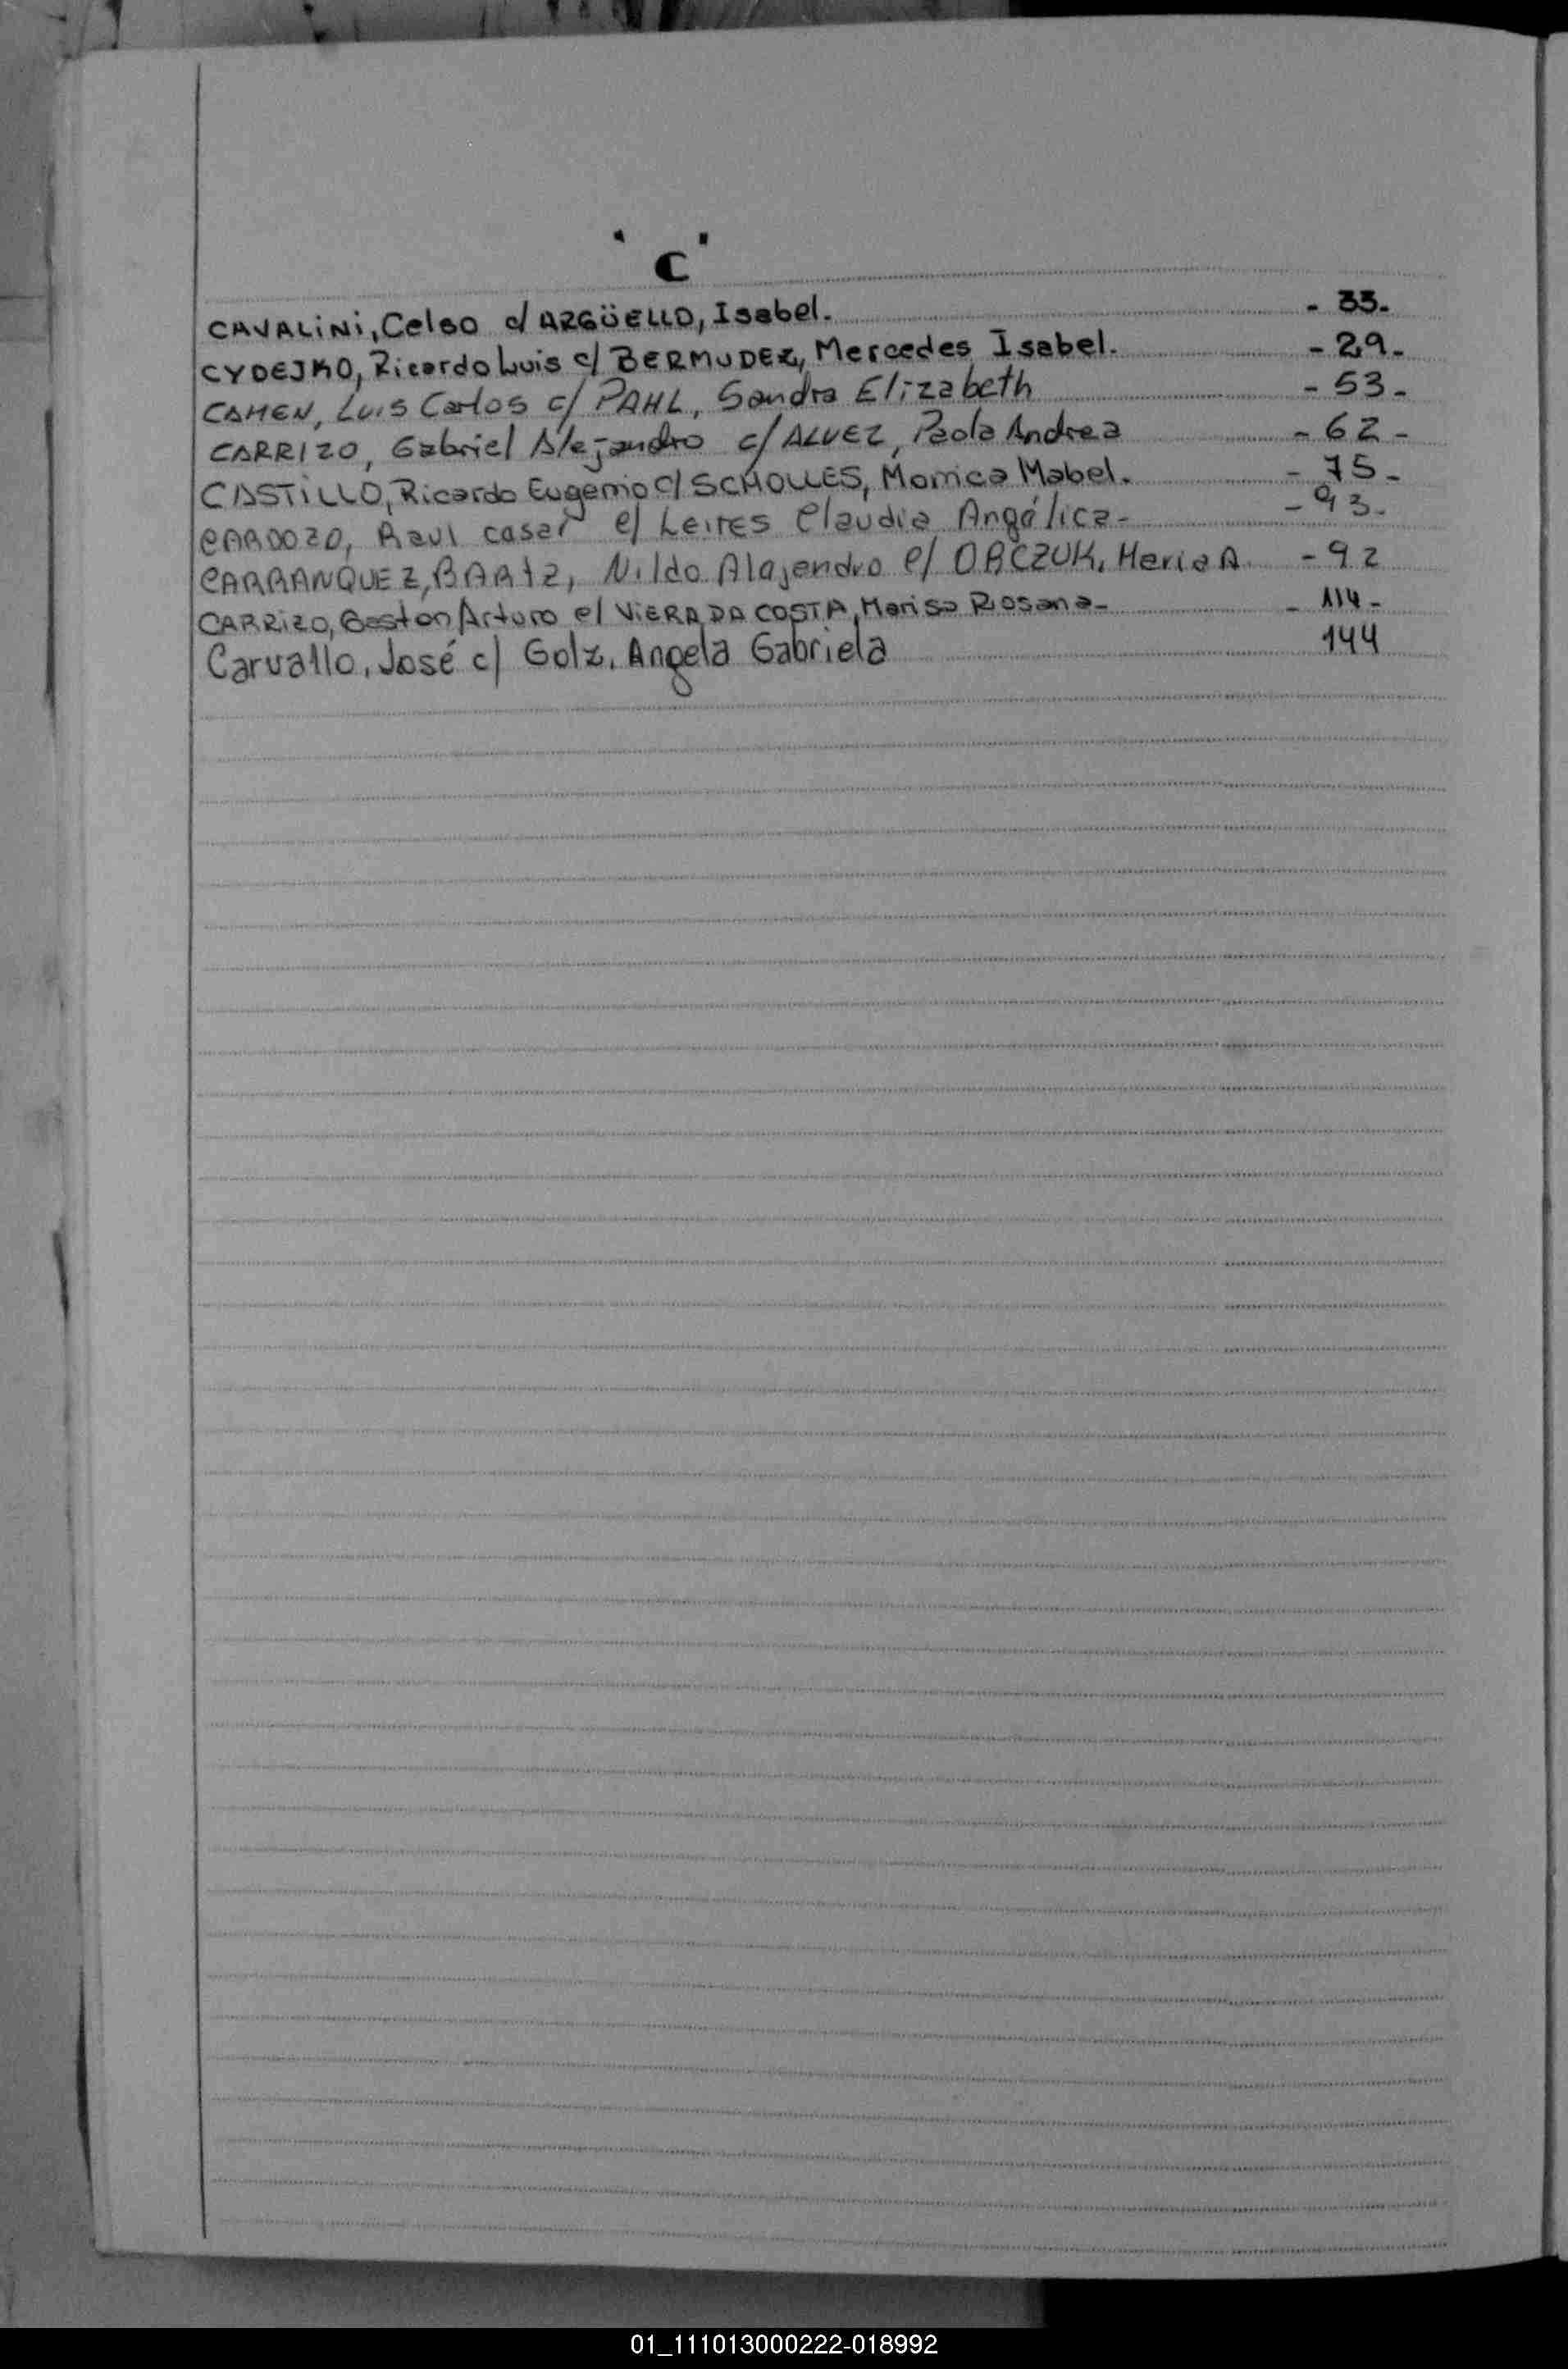 "C"
CAVALiNi, Celso c/ ARGÜELLO, Isabel. - 33.
CYDEJKO, Ricardo Luis c/ BERMUDEZ, Mercedes Isabel. - 29.
CAMEN, Luis Carlos c/ PAHL, Sandra Elizabeth - 53 -
CARRIZO, Gabriel Alejandro c/ ALVEZ, Paola Andrea - 62 -
CASTiLLO, Ricardo Eugenio c/ SCHOLLES, Monica Mabel. - 75 -
CARDOZO, Raul cesar c/ Leites Claudia Angélica - - 93 -
CARRANQUEZ, BARTZ, Nildo Alajendro c/ ORCZUK, Maria A. - 92
CARRiZO, Gaston Arturo c/ ViERA DA COSTA, Marisa Rosana - - 114 -
Carvallo, José c/ Golz, Angela Gabriela 144
01_111013000222-018992